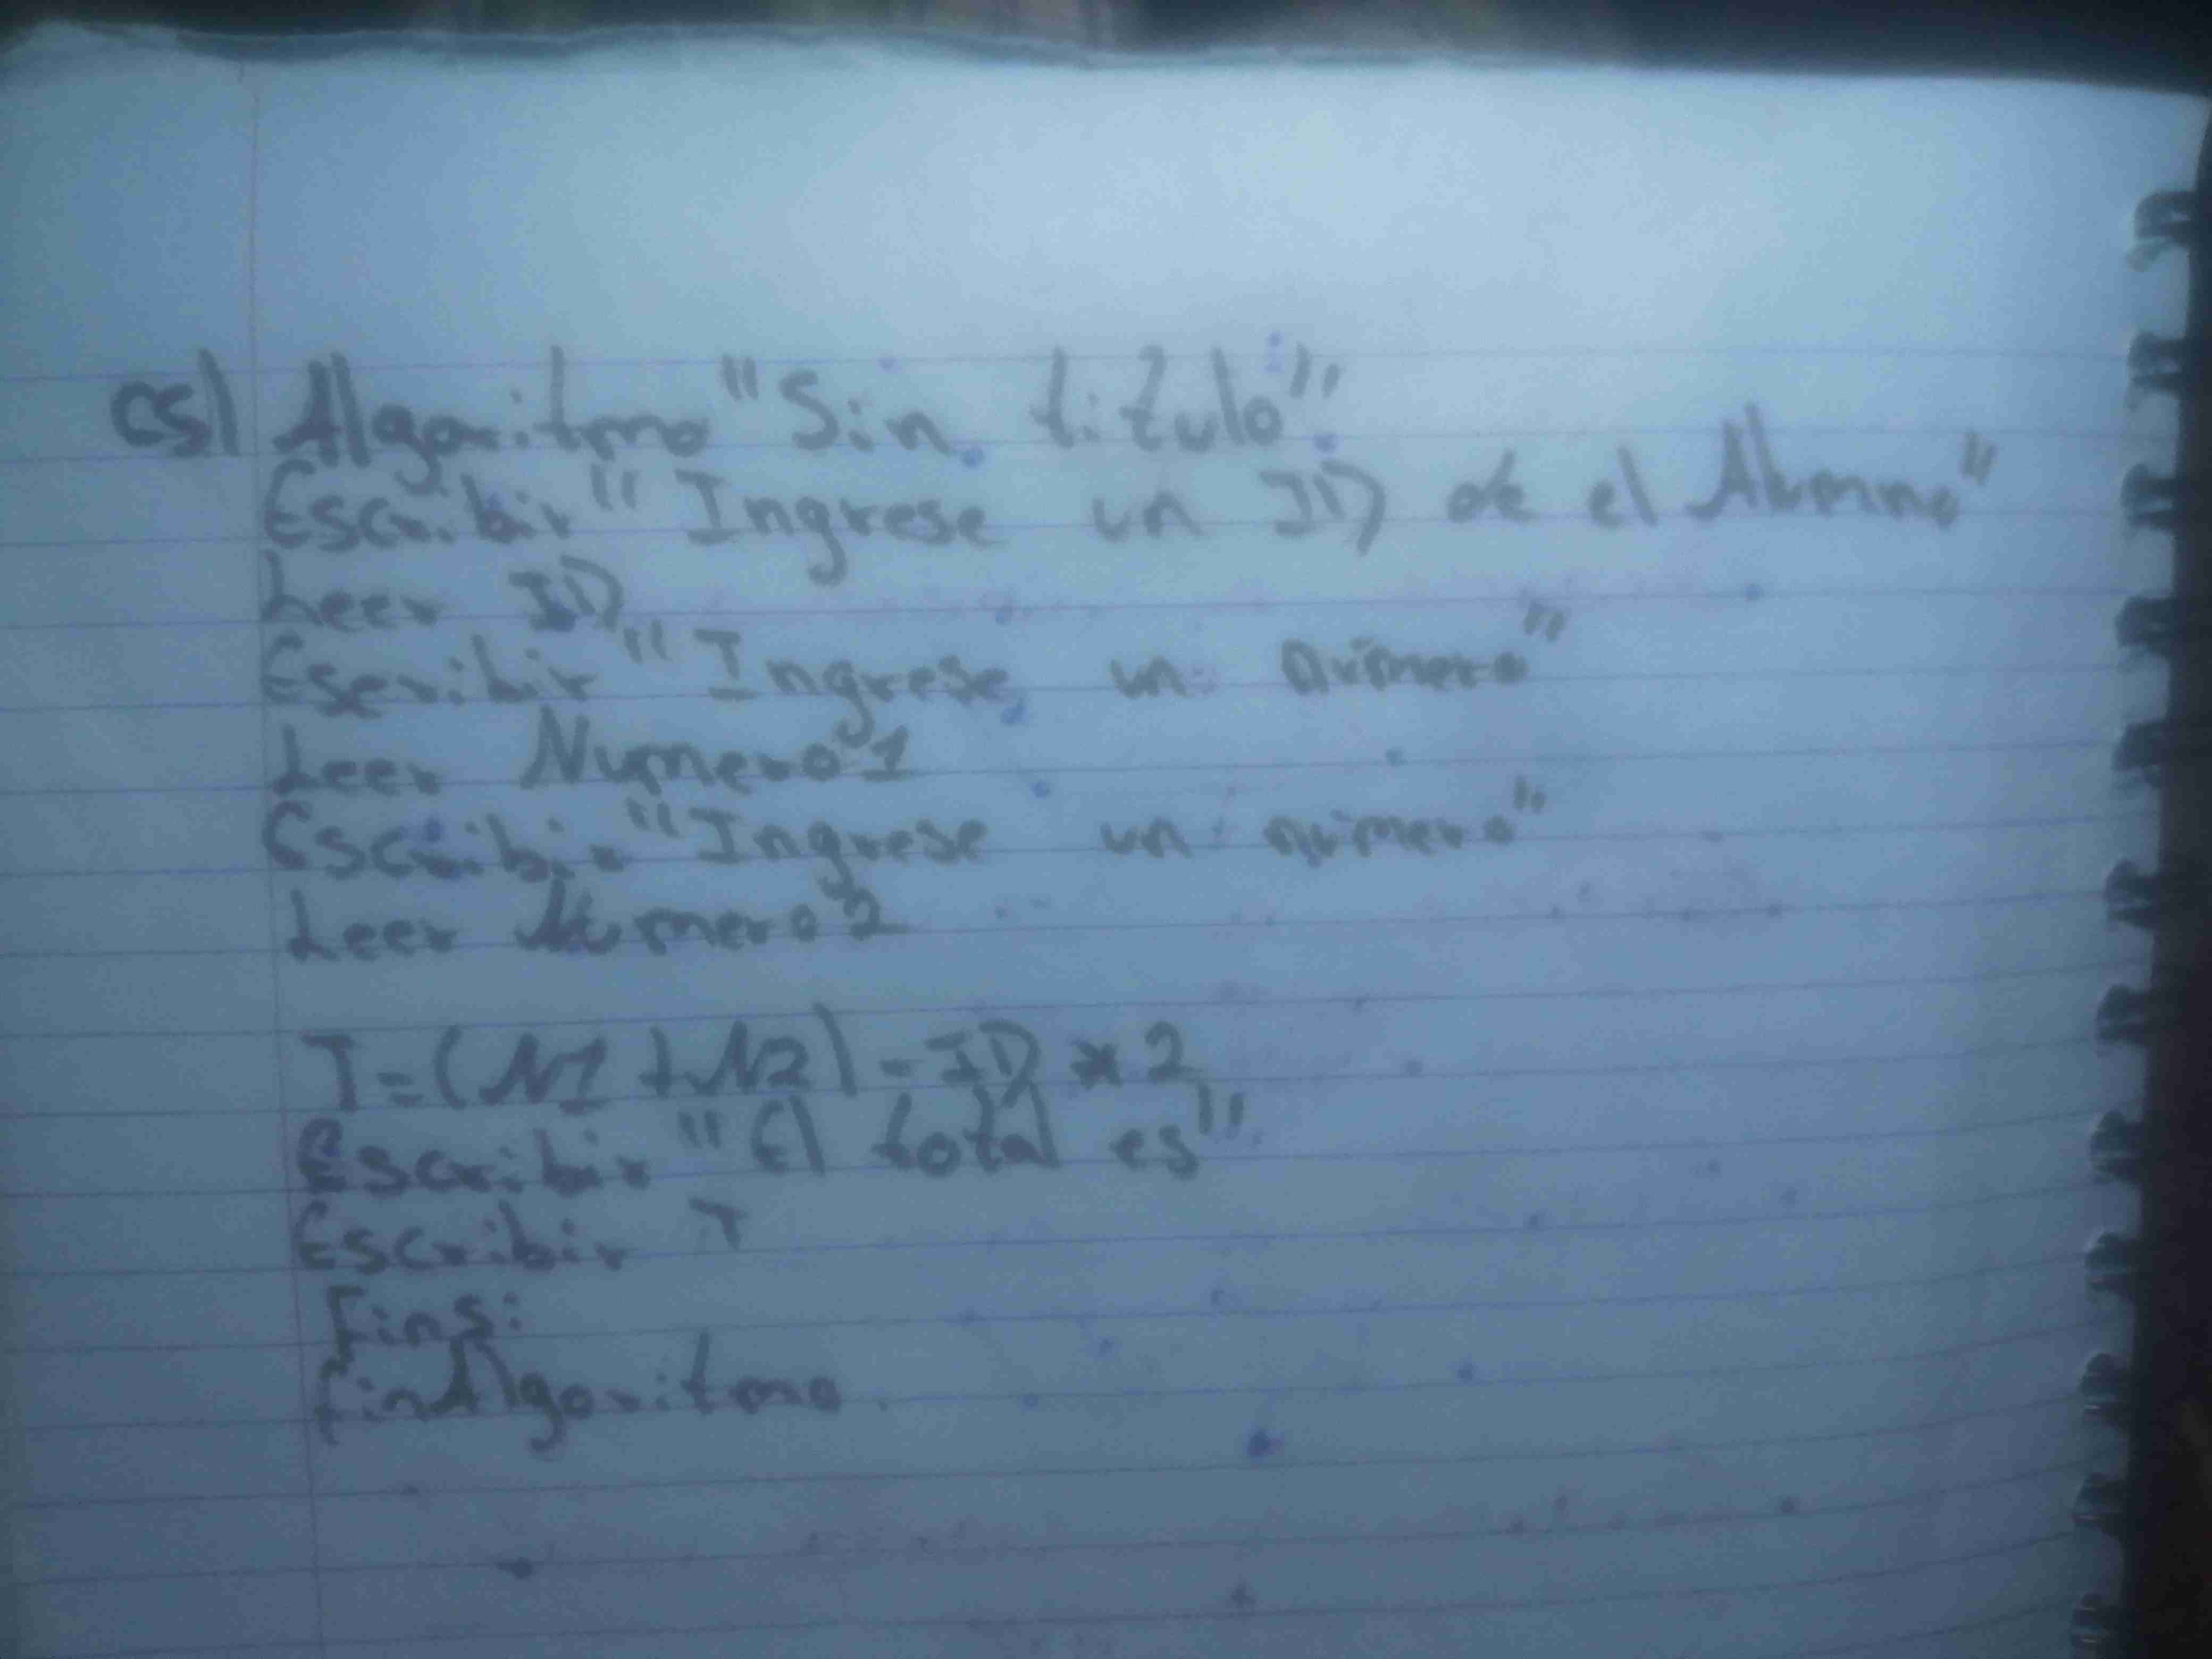 CS) Algoritmo "Sin titulo"
Escribir "Ingrese un ID de el Alumno"
Leer ID
Escribir "Ingrese un número"
Leer Numero1
Escribir "Ingrese un número"
Leer Numero2
T=(N1+N2)-ID*2
Escribir "El total es"
Escribir T
FinSi
finAlgoritmo.